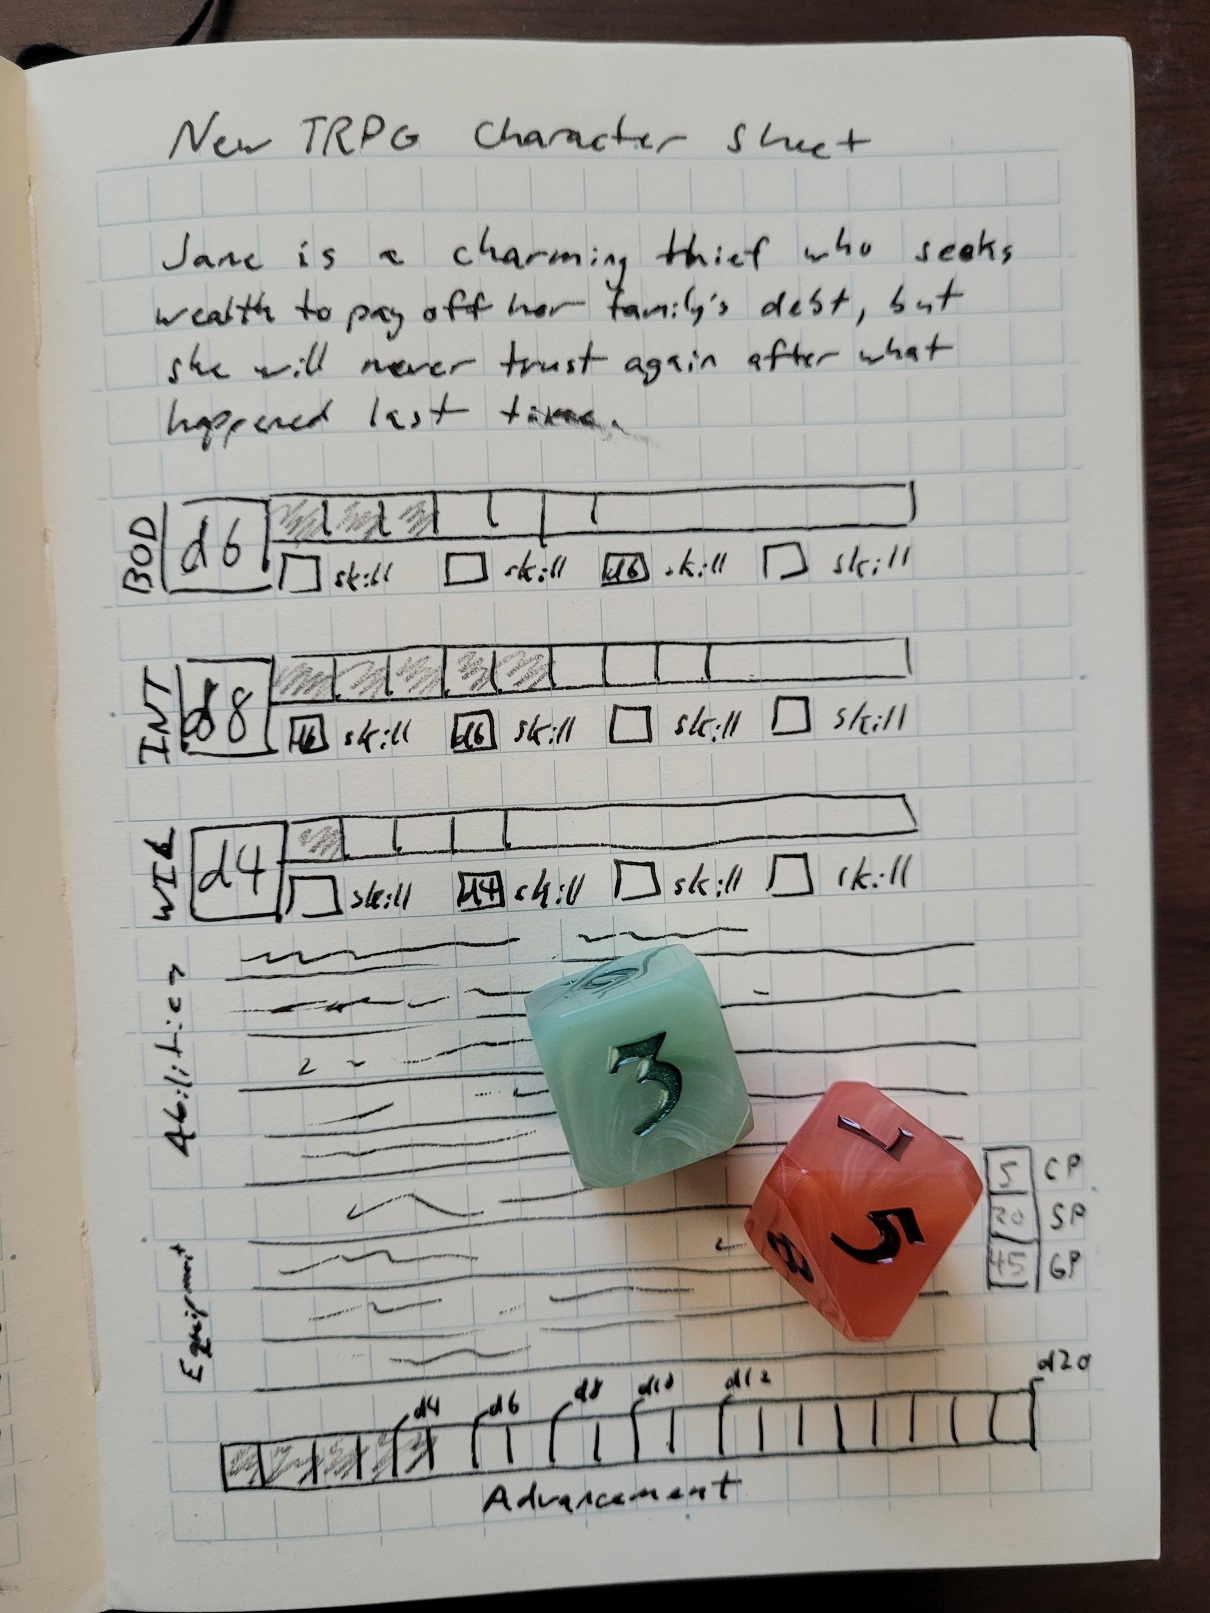 New TRPG Character Sheet
Jane is a charming thief who seeks
wealth to pay off her family's debt, but
she will never trust again after what
happened last time.
BOD d6
skill skill d6 skill skill
INT d8
d6 skill d6 skill skill skill
WIL d4
skill d4 skill skill skill
Abilities
3
7
5
8
5 CP
20 SP
45 GP
Equipment
d4 d6 d8 d10 d12 d20
Advancement